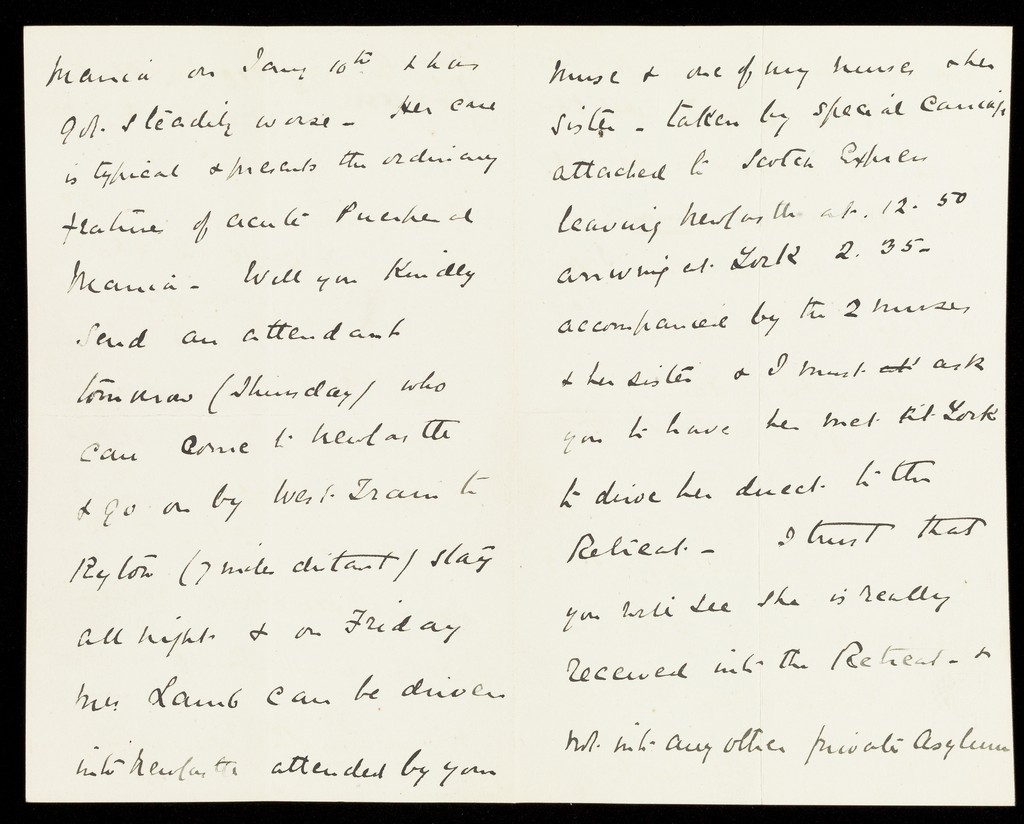 Mania on Jany 10th & has
got steadily worse - Her case
is typical & presents the ordinary
features of acute Puerperal
Mania - Will you Kindly
send an attendant
tomorrow (Thursday) who
can come to Newcastle
& go on by West Train to
Ryton (7 miles distant) stay
all night & on Friday
Mrs Lamb can be driven
into Newcastle attended by your
nurse & one of my nurses & her
sister - taken by special carriage
attached to Scotch Express
leaving Newcastle at. 12. 50
arriving at York 2. 35 -
accompanied by the 2 nurses
& her sister & I must at ask
you to have her met at York
to drive her direct to the
Retreat - I trust that
you will see she is really
received into the Retreat - &
not into any other private Asylum